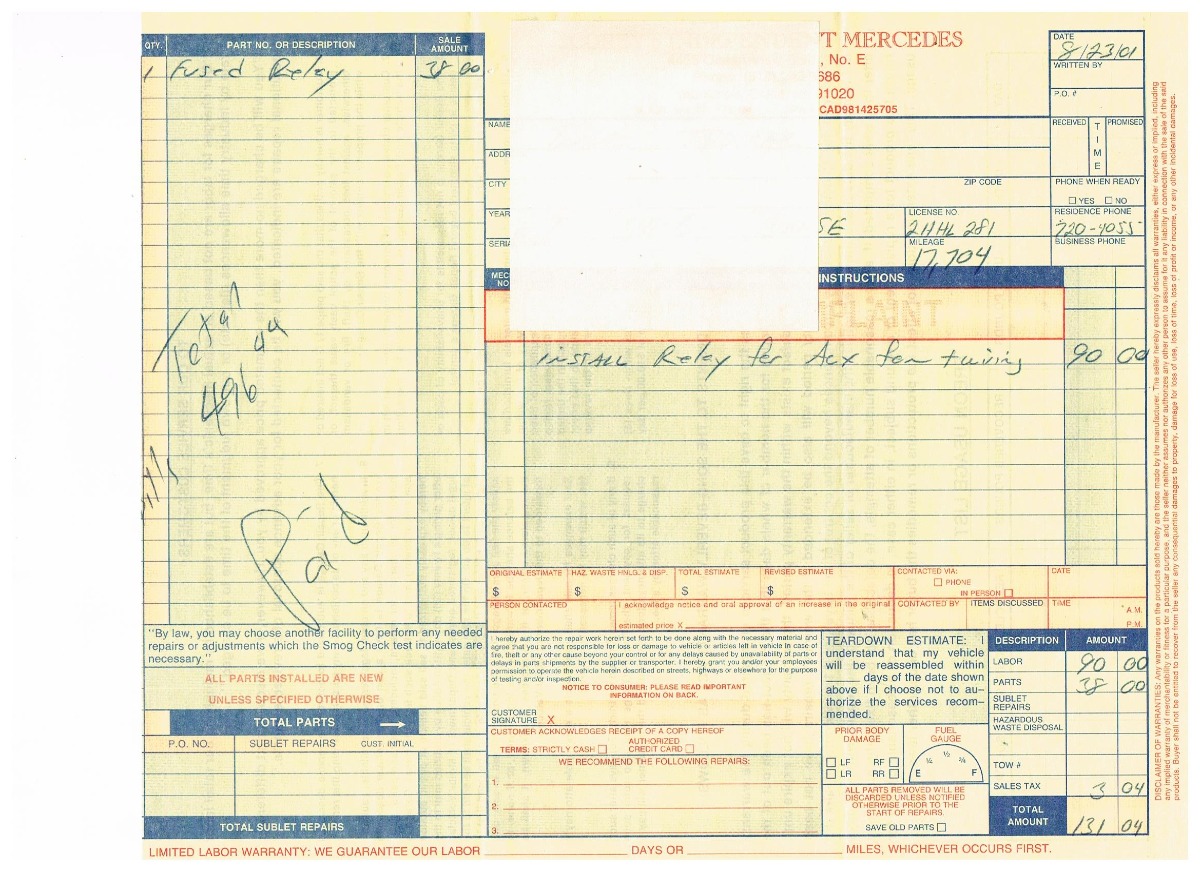 QTY. PART NO. OR DESCRIPTION SALE AMOUNT
1 Fused Relay 38 00
Total
496 44
Paid
"By law, you may choose another facility to perform any needed
repairs or adjustments which the Smog Check test indicates are
necessary."
ALL PARTS INSTALLED ARE NEW
UNLESS SPECIFIED OTHERWISE
TOTAL PARTS
P.O. NO. SUBLET REPAIRS CUST. INITIAL
TOTAL SUBLET REPAIRS
T MERCEDES
, No. E
686
91020
CAD981425705
DATE
8/23/01
WRITTEN BY
P.O. #
NAME
RECEIVED TIME PROMISED
ADDR
CITY ZIP CODE
PHONE WHEN READY
YES NO
YEAR SE
LICENSE NO.
2HHL 281
RESIDENCE PHONE
720-4055
SERIA
MILEAGE
17,704
BUSINESS PHONE
MEC NO INSTRUCTIONS
PLAINT
INSTALL Relay for Aux fan + wiring 90 00
ORIGINAL ESTIMATE HAZ. WASTE HNLG. & DISP. TOTAL ESTIMATE REVISED ESTIMATE
$ $ $ $
CONTACTED VIA:
PHONE
IN PERSON
DATE
PERSON CONTACTED
I acknowledge notice and oral approval of an increase in the original
estimated price X
CONTACTED BY ITEMS DISCUSSED TIME
A.M.
P.M.
I hereby authorize the repair work herein set forth to be done along with the necessary material and
agree that you are not responsible for loss or damage to vehicle or articles left in vehicle in case of
fire, theft or any other cause beyond your control or for any delays caused by unavailability of parts or
delays in parts shipments by the supplier or transporter. I hereby grant you and/or your employees
permission to operate the vehicle herein described on streets, highways or elsewhere for the purpose
of testing and/or inspection.
NOTICE TO CONSUMER: PLEASE READ IMPORTANT
INFORMATION ON BACK.
CUSTOMER
SIGNATURE X
CUSTOMER ACKNOWLEDGES RECEIPT OF A COPY HEREOF
TERMS: STRICTLY CASH AUTHORIZED CREDIT CARD
WE RECOMMEND THE FOLLOWING REPAIRS:
1.
2.
3.
TEARDOWN ESTIMATE: I
understand that my vehicle
will be reassembled within
______ days of the date shown
above if I choose not to au-
thorize the services recom-
mended.
PRIOR BODY
DAMAGE
LF RF
LR RR
FUEL
GAUGE
E ¼ ½ ¾ F
ALL PARTS REMOVED WILL BE
DISCARDED UNLESS NOTIFIED
OTHERWISE PRIOR TO THE
START OF REPAIRS.
SAVE OLD PARTS
DESCRIPTION AMOUNT
LABOR 90 00
PARTS 38 00
SUBLET
REPAIRS
HAZARDOUS
WASTE DISPOSAL
TOW #
SALES TAX 3 04
TOTAL
AMOUNT 131 04
LIMITED LABOR WARRANTY: WE GUARANTEE OUR LABOR ______ DAYS OR ______ MILES, WHICHEVER OCCURS FIRST.
DISCLAIMER OF WARRANTIES: Any warranties on the products sold hereby are those made by the manufacturer. The seller hereby expressly disclaims all warranties, either express or implied, including
any implied warranty of merchantability or fitness for a particular purpose, and the seller neither assumes nor authorizes any other person to assume for it any liability in connection with the sale of the said
products. Buyer shall not be entitled to recover from the seller any consequential damages, damages to property, damage for loss of use, loss of time, loss of profit or income, or any other incidental damages.